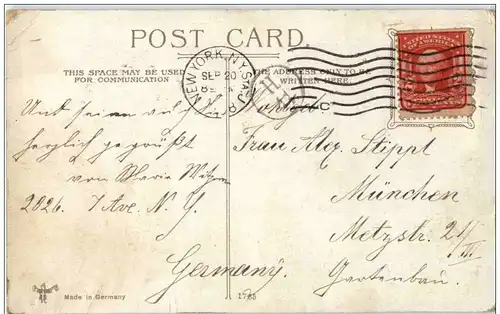 POST CARD
THIS SPACE MAY BE USED
FOR COMMUNICATION
THE ADDRESS ONLY TO BE
WRITTEN HERE
NEW YORK, N.Y. STA. J
SEP 20
UNITED STATES
OF AMERICA
Und seien
herzlich gegrüßt
von Marie
2026. 7 Ave. N. Y.
Frau Alex. Stippl
München
Metzstr. 24/III.
Gartenbau.
Germany.
Made in Germany
1765